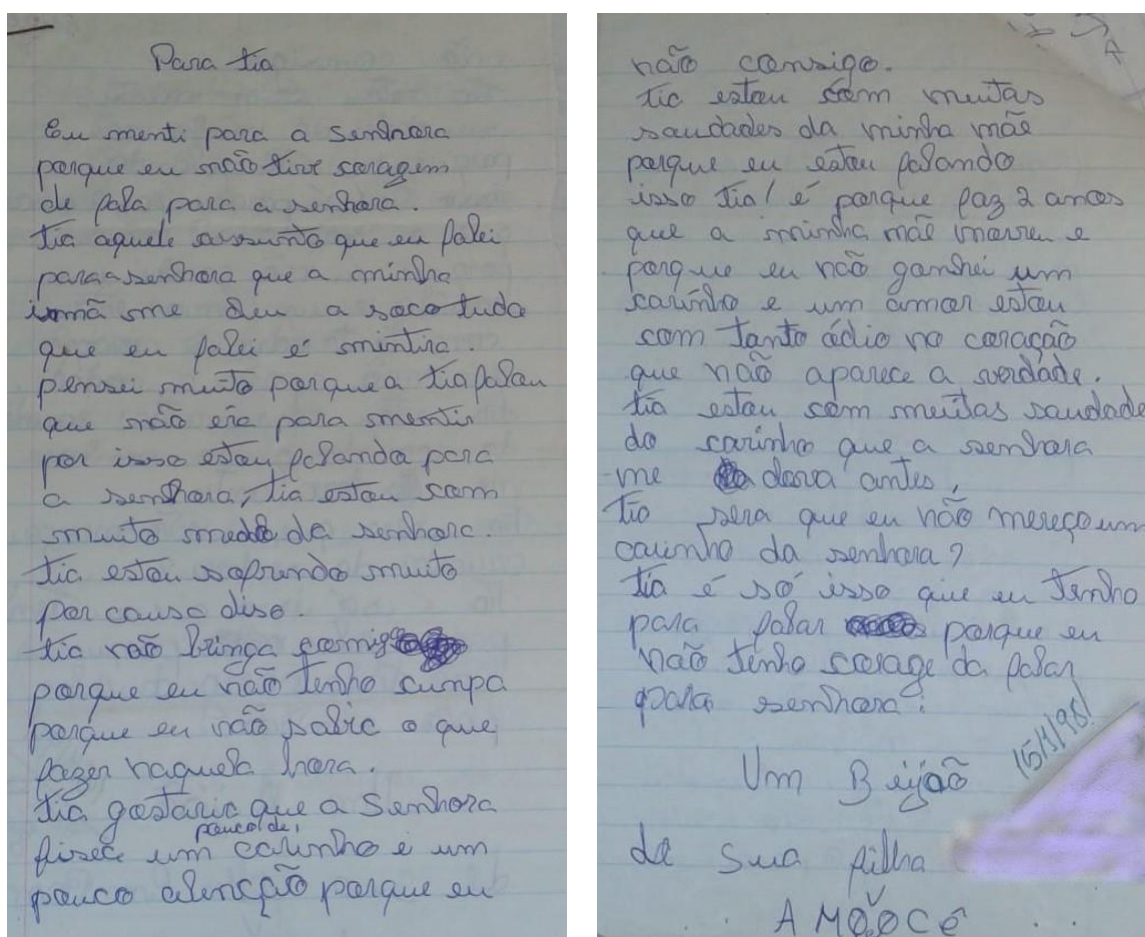 Para tia
Eu menti para a senhora
porque eu não tive coragem
de fala para a senhora.
tia aquele assunto que eu falei
para a senhora que a minha
irmã me deu a soco tudo
que eu falei é mintira.
pensei muito porque a tia falou
que não era para mentir
por isso estou falando para
a senhora, tia estou com
muito medo da senhora.
tia estou sofrendo muito
por causo diso.
tia não bringa comigo
porque eu não tenho cumpa
porque eu não sabia o que
fazer naquela hora.
tia gostaria que a Senhora
fisece um pouco de carinho e um
pouco atenção porque eu
não consigo.
tia estou com muitas
saudades da minha mãe
porque eu estou falando
isso tia! é porque faz 2 anos
que a minha mãe morreu e
porque eu não ganhei um
carinho e um amor estou
com tanto ódio no coração
que não aparece a verdade.
tia estou com muitas saudade
do carinho que a senhora
me dava antes,
tia sera que eu não mereço um
carinho da senhora?
tia é só isso que eu tenho
para falar porque eu
não tenho corage da falar
para senhora.
Um Beijão
de sua filha